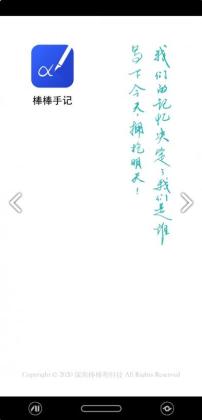 棒棒手记
我们的记忆决定了我们是谁
写下今天,拥抱明天!
Copyright © 2020 深圳棒棒帮科技 All Rights Reserved